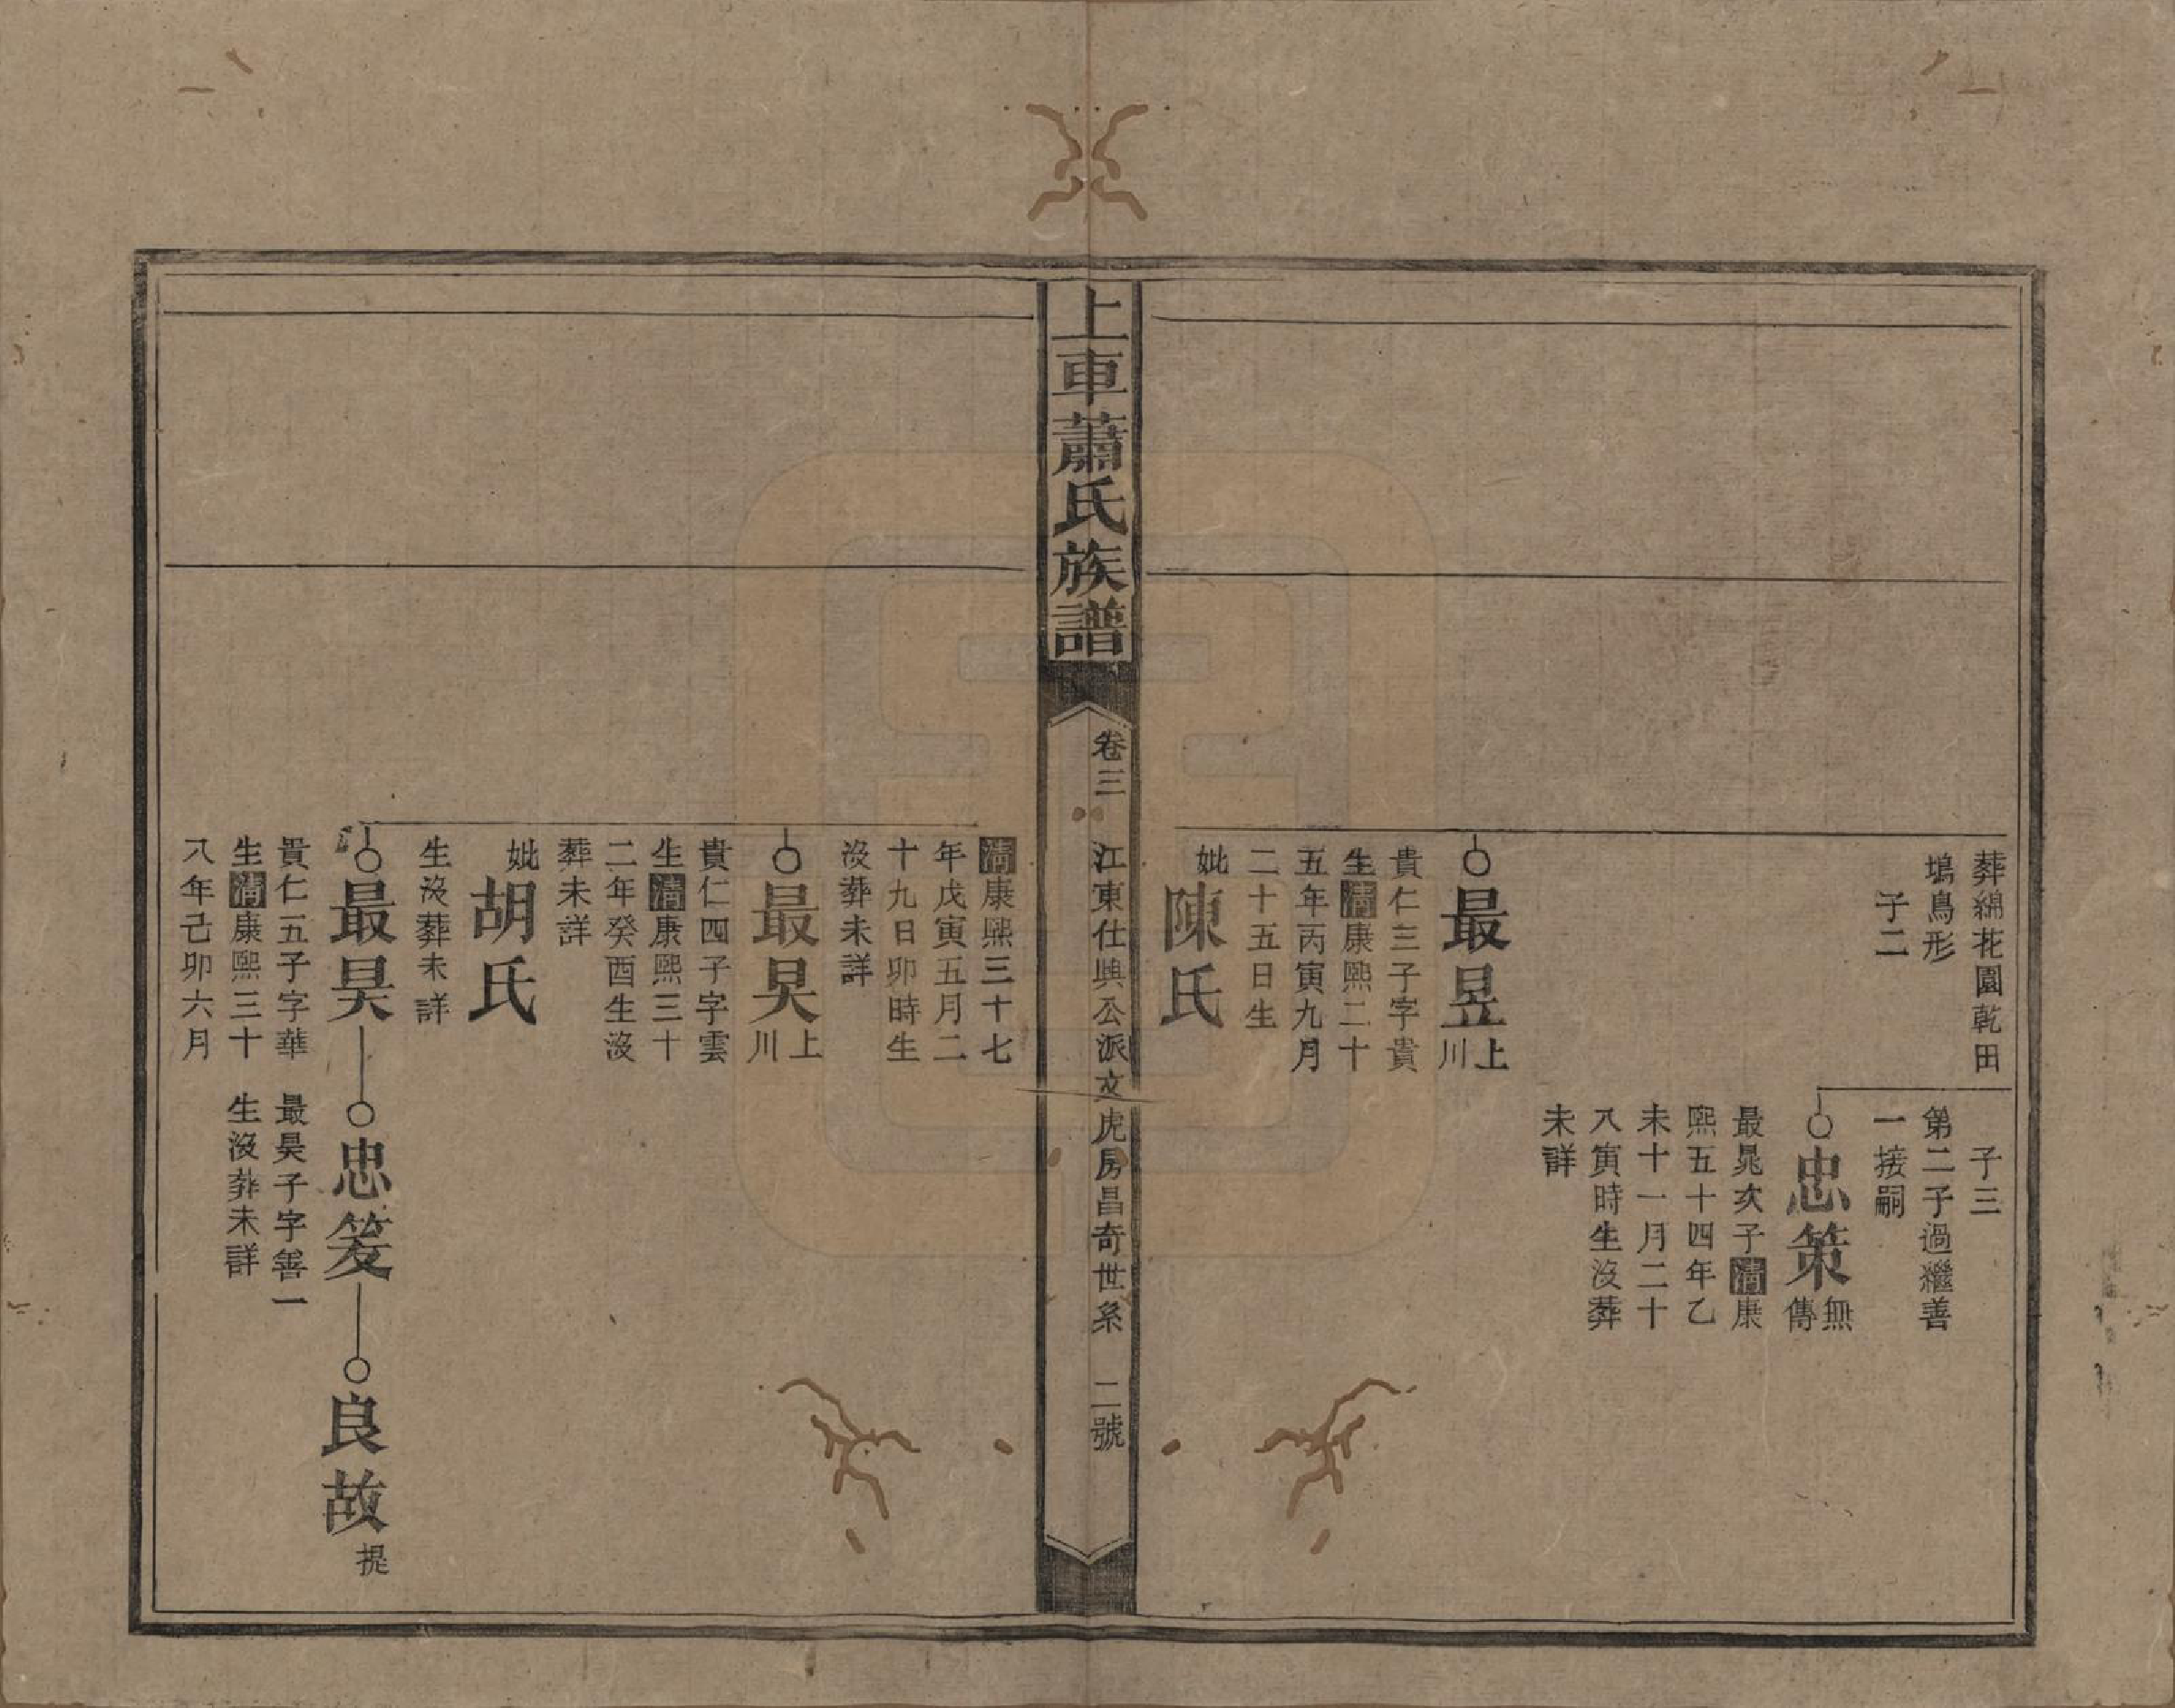 葬綿花園乾田
塢鳥形
子二
子三
第二子過繼善
一接嗣
忠策
無傳
最晁次子清康
熙五十四年乙
未十一月二十
八寅時生沒葬
未詳
最昱
上川
貴仁三子字貴
生清康熙二十
五年丙寅九月
二十五日生
妣陳氏
上車蕭氏族譜
卷三
江東仕興公派文虎房昌奇世系
二號
清康熙三十七
年戊寅五月二
十九日卯時生
沒葬未詳
最旲
上川
貴仁四子字雲
生清康熙三十
二年癸酉生沒
葬未詳
妣胡氏
生沒葬未詳
最昊
貴仁五子字華
生清康熙三十
八年己卯六月
忠笅
最昊子字善一
生沒葬未詳
良故
提